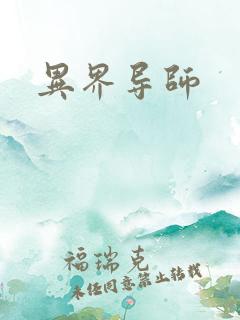 異界导師
福瑞克
未经同意禁止转载